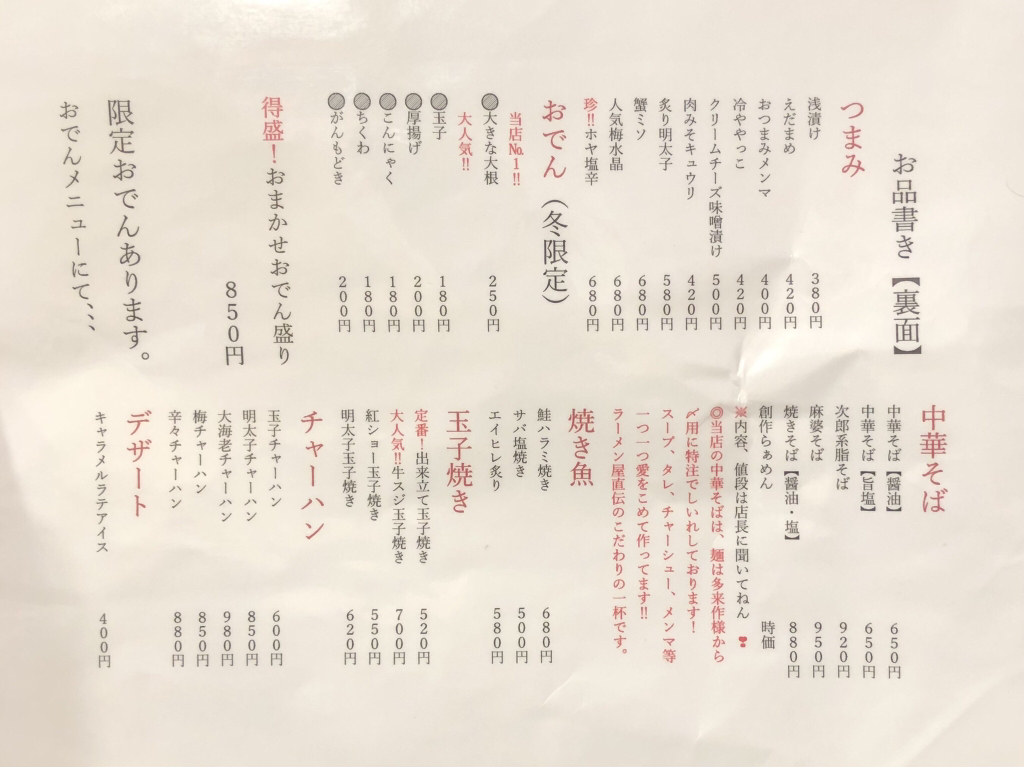 お品書き【裏面】
つまみ
浅漬け 380円
えだまめ 420円
おつまみメンマ 400円
冷ややっこ 420円
クリームチーズ味噌漬け 500円
肉みそキュウリ 420円
炙り明太子 580円
蟹ミソ 680円
人気梅水晶 680円
珍!!ホヤ塩辛 680円
おでん（冬限定）
当店№1!!
●大きな大根 250円
大人気!!
●玉子 180円
●厚揚げ 200円
●こんにゃく 180円
●ちくわ 180円
●がんもどき 200円
得盛！おまかせおでん盛り
850円
限定おでんあります。
おでんメニューにて、、、
中華そば
中華そば【醤油】 650円
中華そば【旨塩】 650円
次郎系脂そば 920円
麻婆そば 950円
焼きそば【醤油・塩】 880円
創作らぁめん 時価
※内容、値段は店長に聞いてねん❣
◎当店の中華そばは、麺は多来作様から
〆用に特注でしいれしております！
スープ、タレ、チャーシュー、メンマ等
一つ一つ愛をこめて作ってます!!
ラーメン屋直伝のこだわりの一杯です。
焼き魚
鮭ハラミ焼き 680円
サバ塩焼き 500円
エイヒレ炙り 580円
玉子焼き
定番！出来立て玉子焼き 520円
大人気!!牛スジ玉子焼き 700円
紅ショー玉子焼き 550円
明太子玉子焼き 620円
チャーハン
玉子チャーハン 600円
明太子チャーハン 850円
大海老チャーハン 980円
梅チャーハン 850円
辛々チャーハン 880円
デザート
キャラメルラテアイス 400円